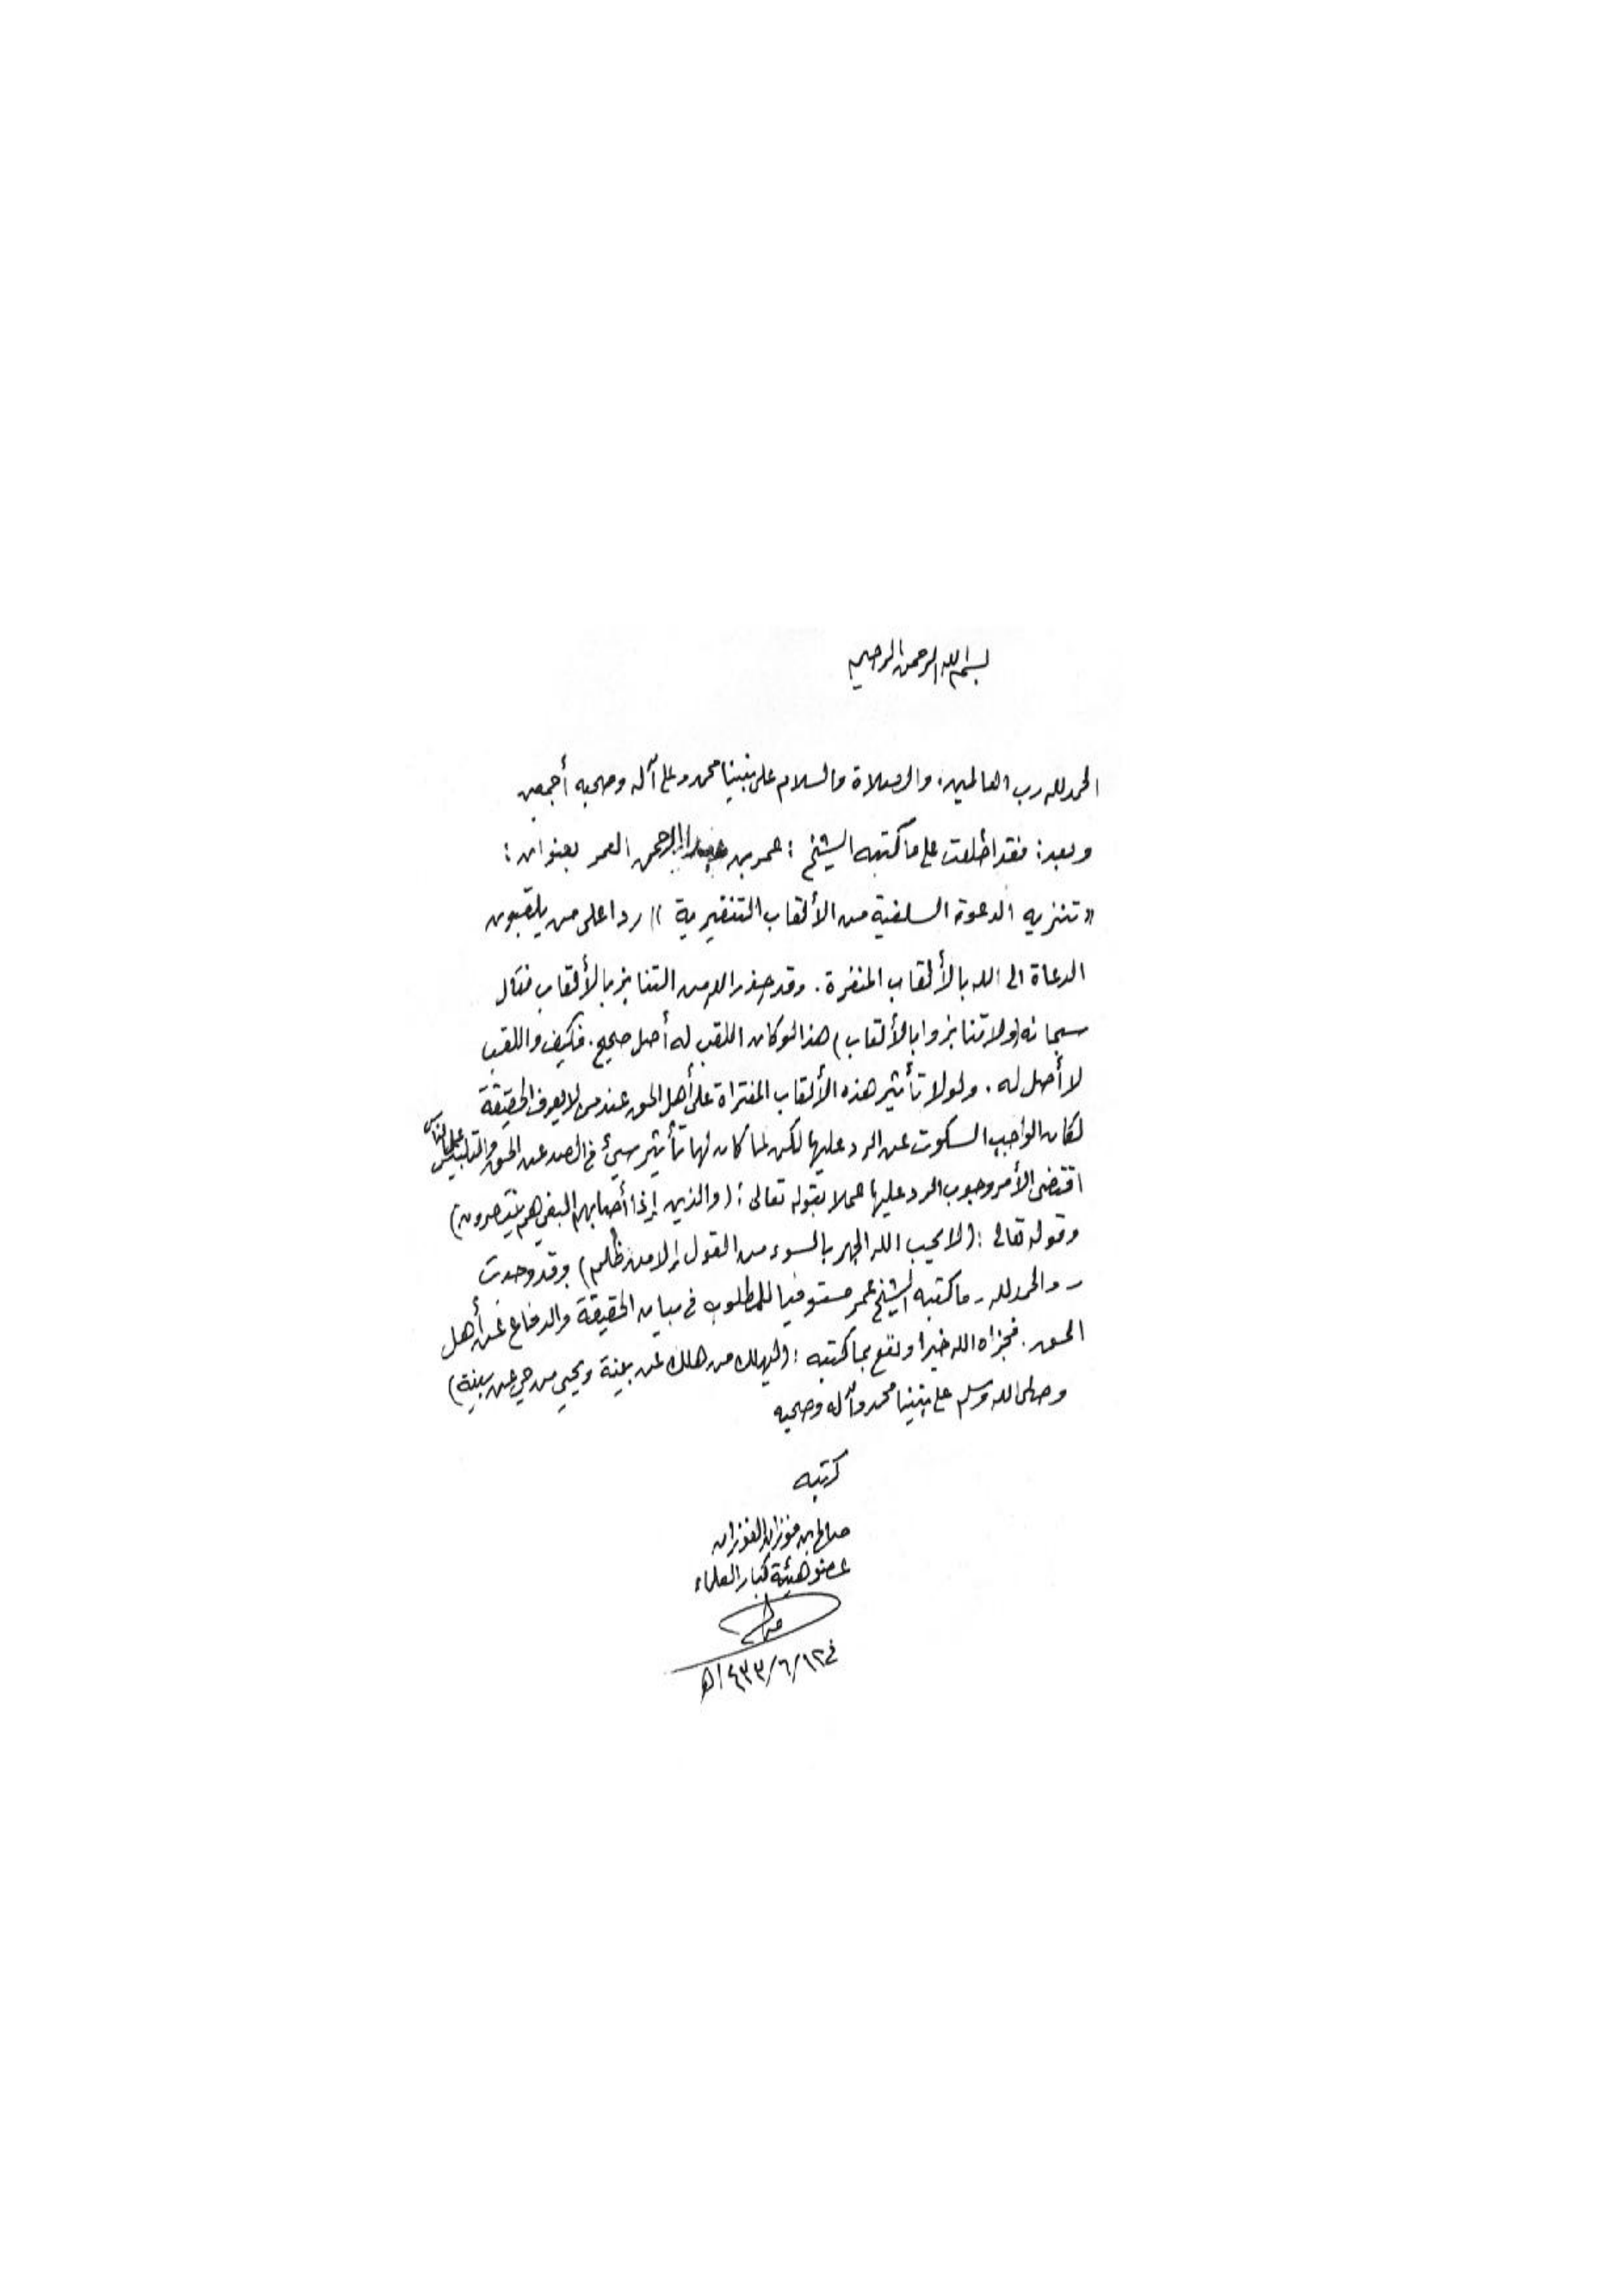 بسم الله الرحمن الرحيم
الحمد لله رب العالمين، والصلاة والسلام على نبينا محمد وعلى آله وصحبه أجمعين
وبعد: فقد اطلعت على ما كتبه الشيخ: عمر بن عبد الرحمن العمر بعنوان:
«تنزيه الدعوة السلفية من الألقاب التنفيرية» ردا على من يلقبون
الدعاة الى الله بالألقاب المنفرة. وقد حذر الله من التنابز بالألقاب فقال
سبحانه (ولا تنابزوا بالألقاب) هذا لو كان اللقب له أصل صحيح. فكيف واللقب
لا أصل له. ولولا تأثير هذه الألقاب المفتراة على أهل الحق عند من لا يعرف الحقيقة
لكان الواجب السكوت عن الرد عليها لكن لما كان لها تأثير سيئ في الصد عن الحق والتلبيس على الناس
اقتضى الأمر وجوب الرد عليها عملا بقوله تعالى: (والذين إذا أصابهم البغي هم ينتصرون)
وقوله تعالى: (لا يحب الله الجهر بالسوء من القول إلا من ظلم) وقد وجدت
- والحمد لله - ما كتبه الشيخ عمر مستوفيا للمطلوب في بيان الحقيقة والدفاع عن أهل
الحق. فجزاه الله خيرا ونفع بما كتبه: (ليهلك من هلك عن بينة ويحيى من حي عن بينة)
وصلى الله وسلم على نبينا محمد وآله وصحبه
كتبه
صالح بن فوزان الفوزان
عضو هيئة كبار العلماء
في ١٢/٦/١٤٣٣هـ